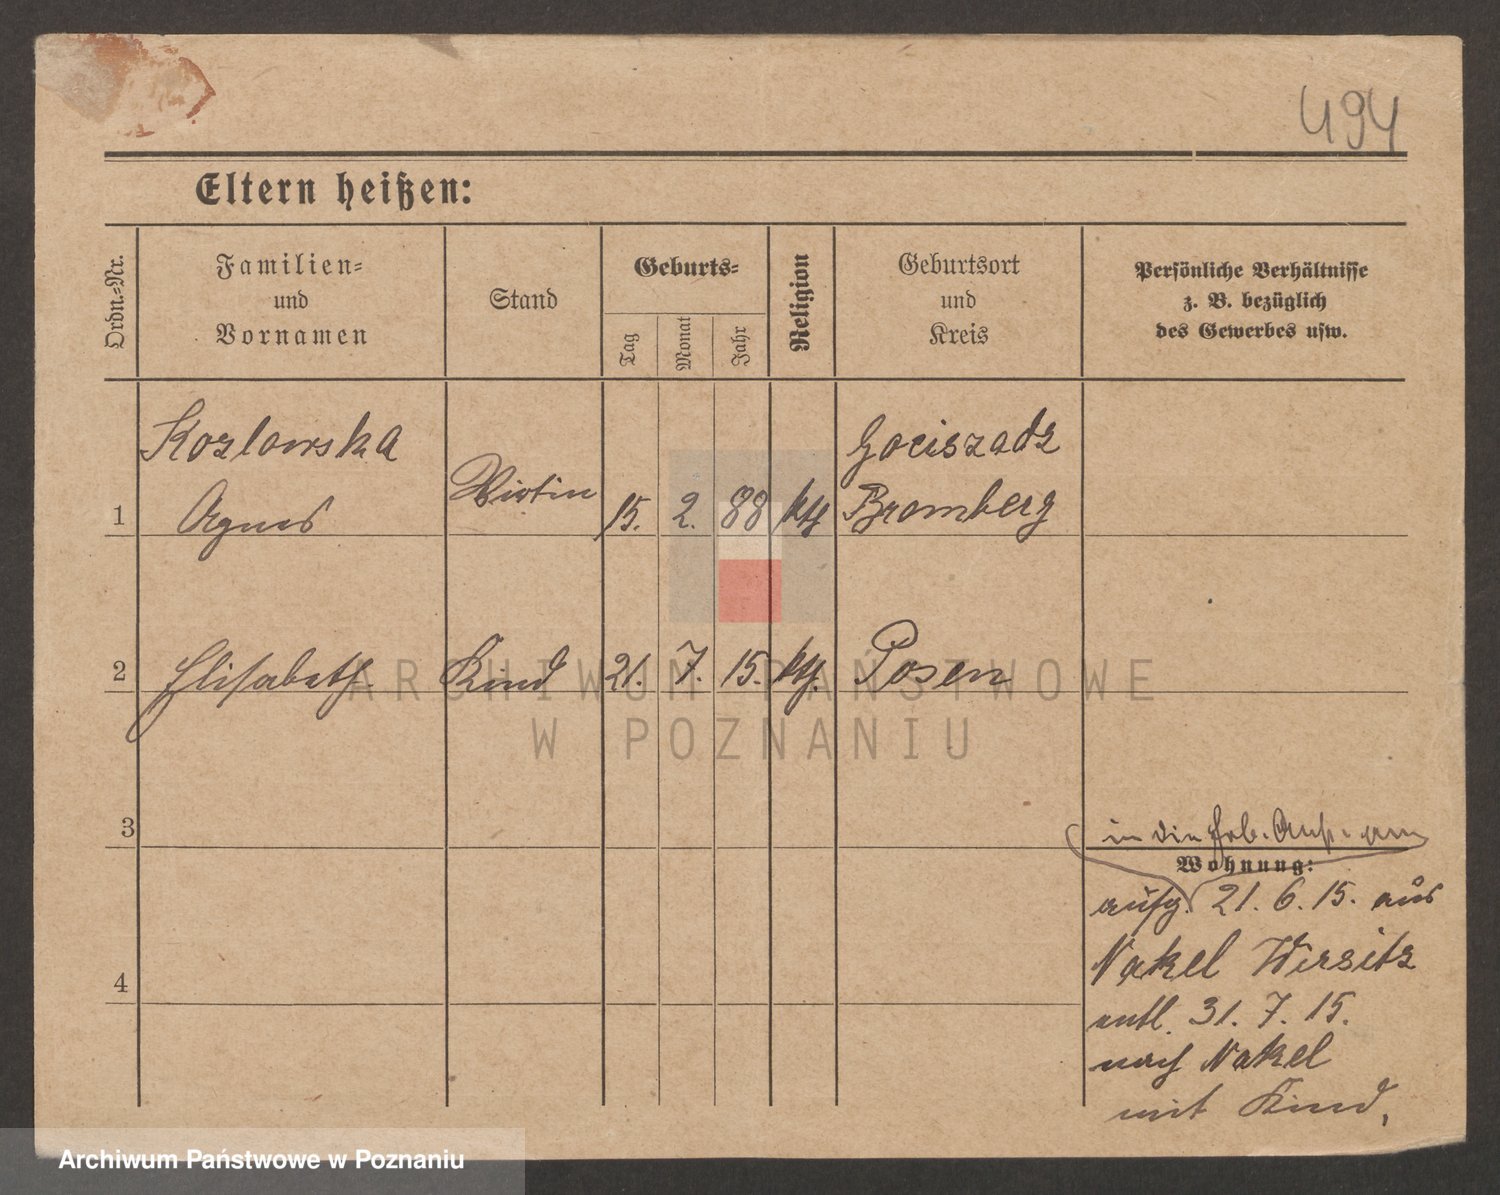 494
Eltern heißen:
Ordn.-Nr.
Familien-
und
Vornamen
Stand
Geburts-
Tag
Monat
Jahr
Religion
Geburtsort
und
Kreis
Persönliche Verhältnisse
z. B. bezüglich
des Gewerbes usw.
Kozlowska
Gociszadz
1 Agnes Wirtin 15. 2. 88 kth Bromberg
2 Elisabeth Kind 21. 7. 15. kth. Posen
3
in die
Wohnung:
aufg. 21. 6. 15. aus
Nakel Wirsitz
4
entl. 31. 7. 15.
nach Nakel
mit Kind,
ARCHIWUM PAŃSTWOWE
W POZNANIU
Archiwum Państwowe w Poznaniu